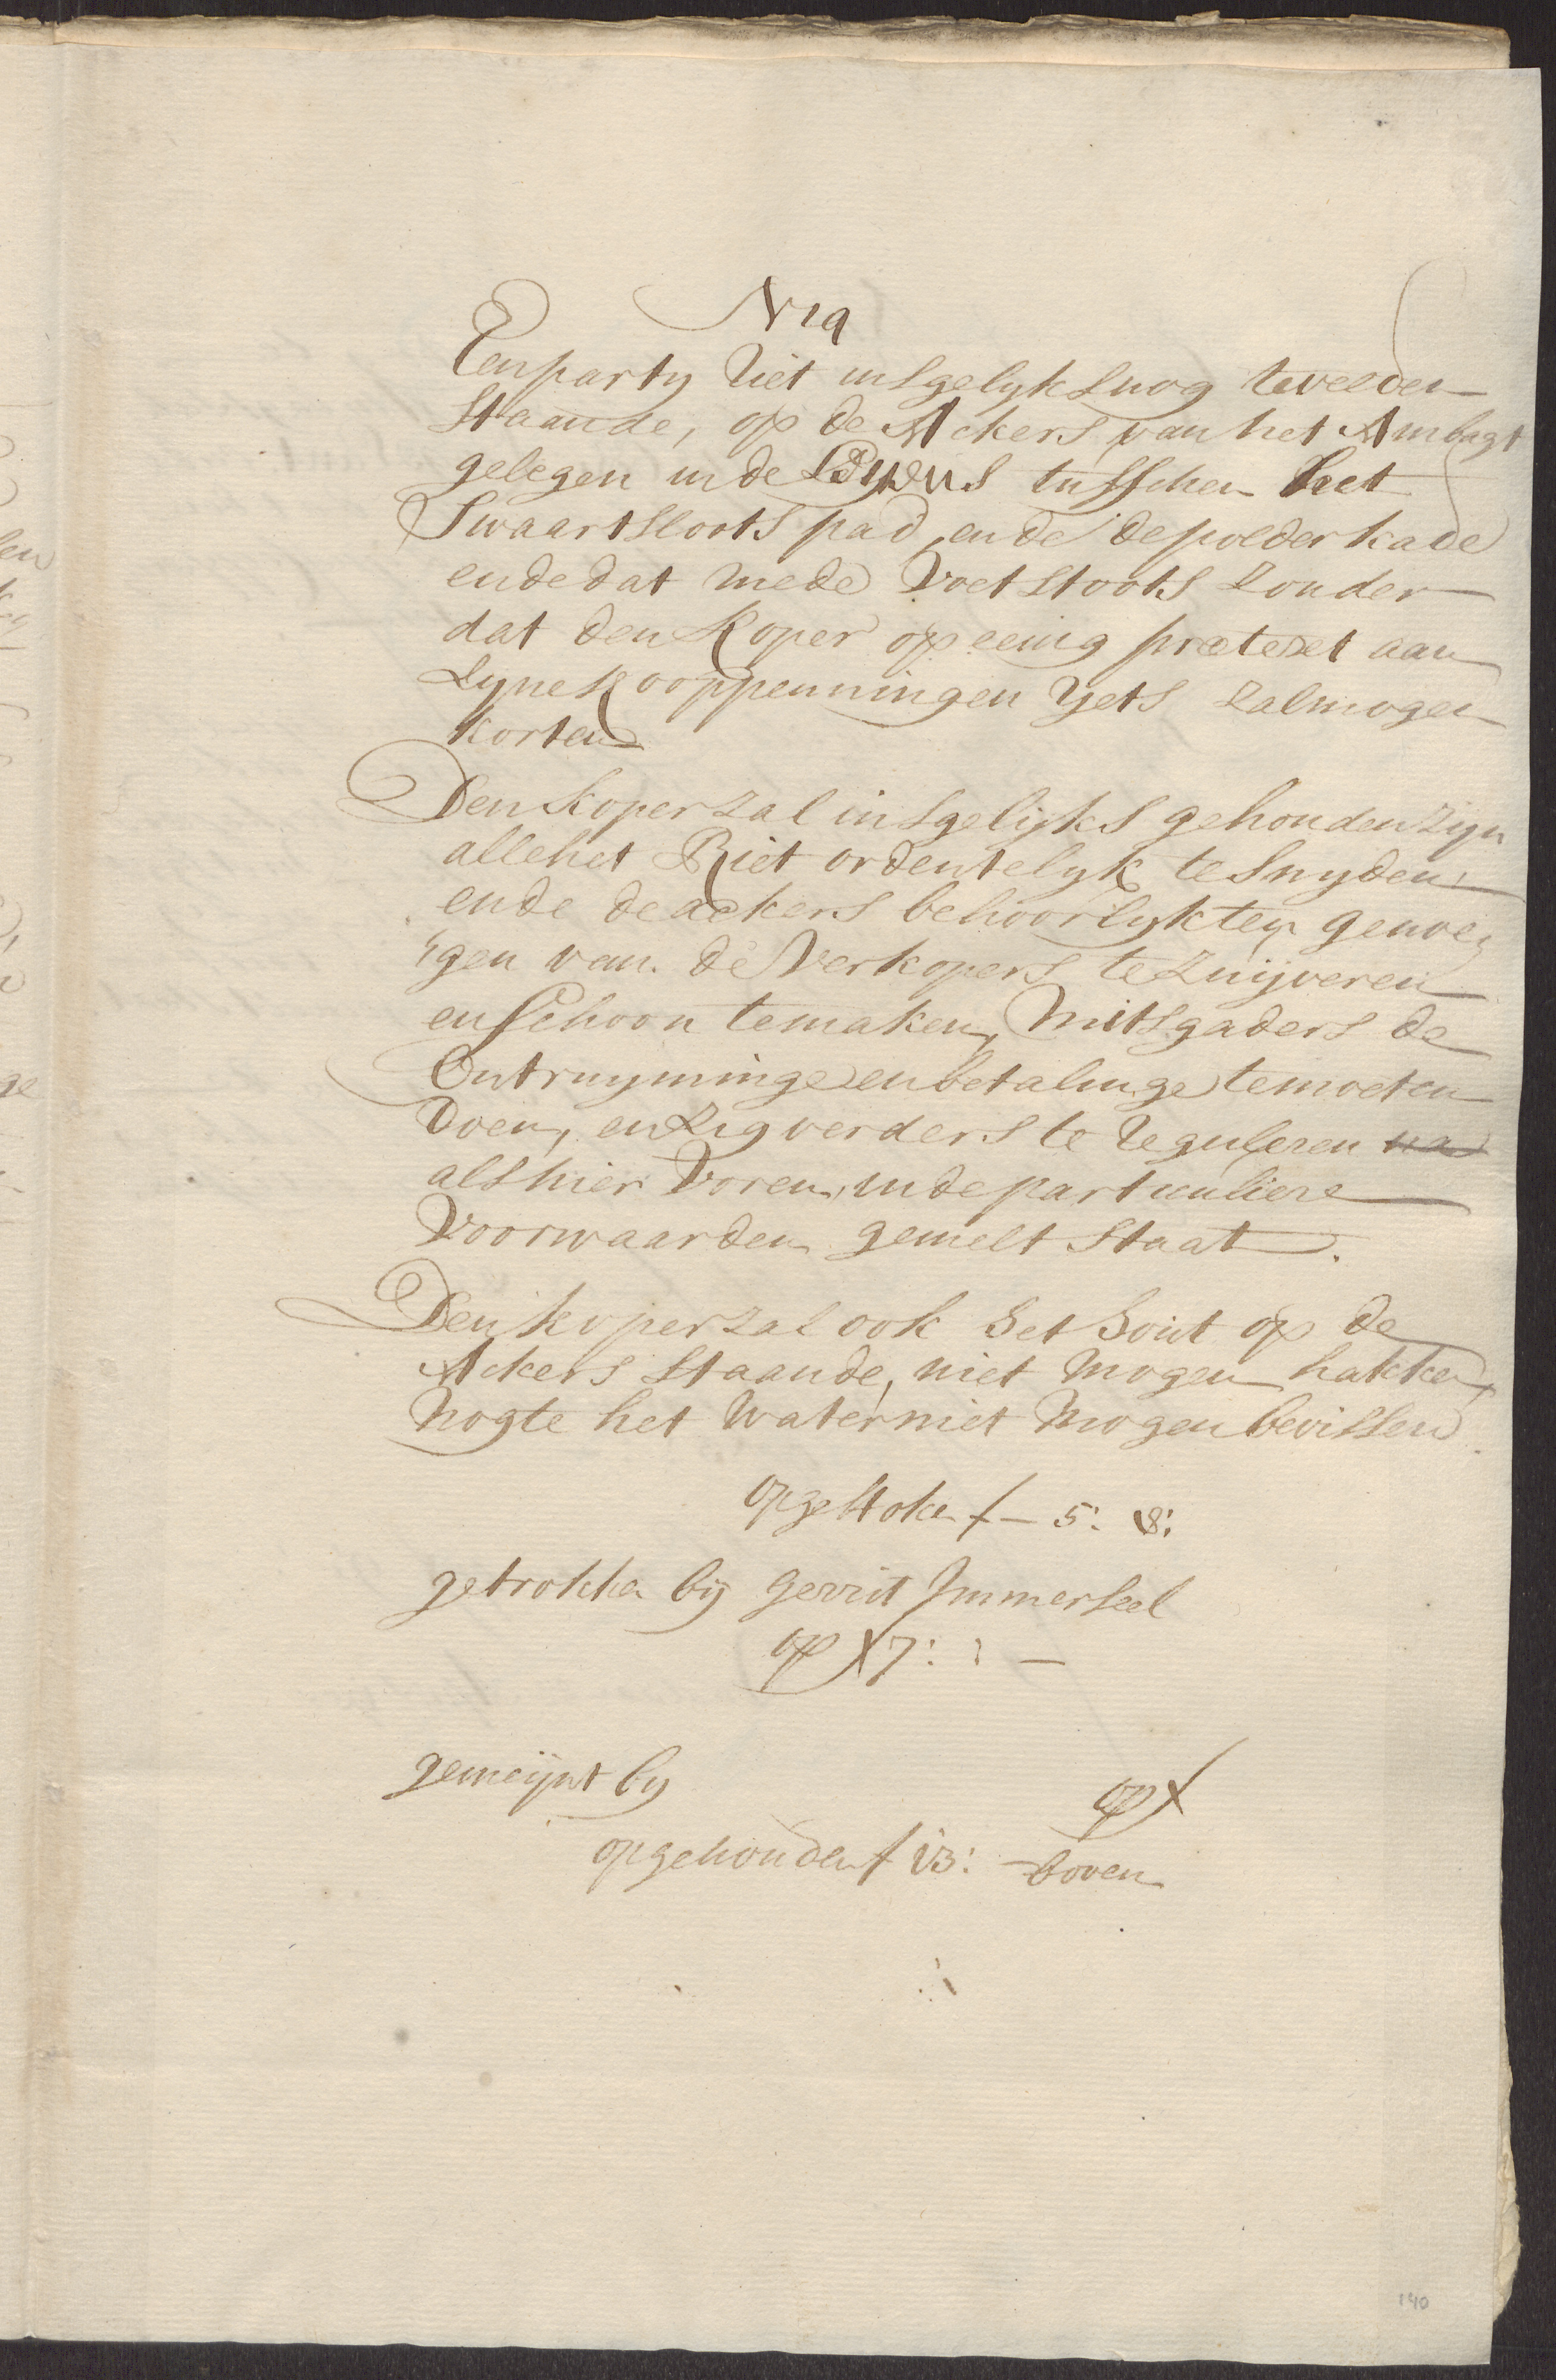 N 19
Een party Riet insgelyks nog te velde
staande, op de Ackers van het Ambagt
gelegen in de tusschen het
Swaartsloots pad ende de polderkade
ende dat mede voetstoots zonder
dat den Koper op eenig pretext aan
zyne Kooppenningen yets zal mogen
korten
Den Koper zal insgelijks gehouden zijn
alle het Riet ordentelyk te snyden
ende de ackers behoorlyk ten genoe¬
gen van de Verkopers te zuijveren
en schoon te maken, Mitsgaders de
Ontruyminge en betalinge te moeten
doen, en zig verders te reguleren na
als hier voren in de particuliere
voorwaarden gemelt staat.
Den koper zal ook het hout op de
Ackers staande, niet mogen hakken
nogte het water niet mogen bevissen
opgestoken f – 5: 8:
getrokken bij Gerrit Immerseel
op f 7: : –
gemeijnt by
op f
opgehouden f 13: – boven
190